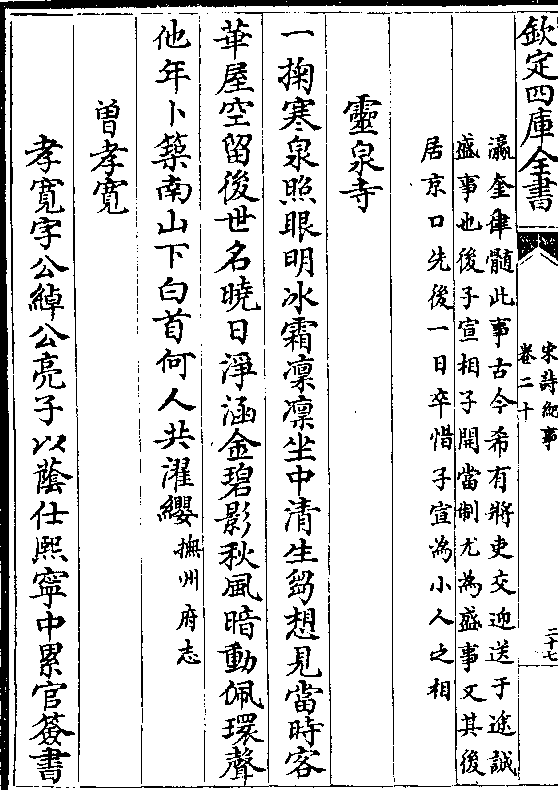 欽定四庫全書
宋詩紀事
卷二十
二十七
瀛奎律髓此事古今希有將吏交迎送于途誠
盛事也後子宣相子開當制尤為盛事又其後
居京口先後一日卒惜子宣為小人之相
靈泉寺
一掬寒泉照眼明冰霜凛凛坐中清生芻想見當時客
華屋空留後世名曉日淨涵金碧影秋風暗動佩環聲
他年卜築南山下白首何人共濯纓撫州府志
曾孝寬
孝寬字公綽公亮子以蔭仕熙寧中累官簽書